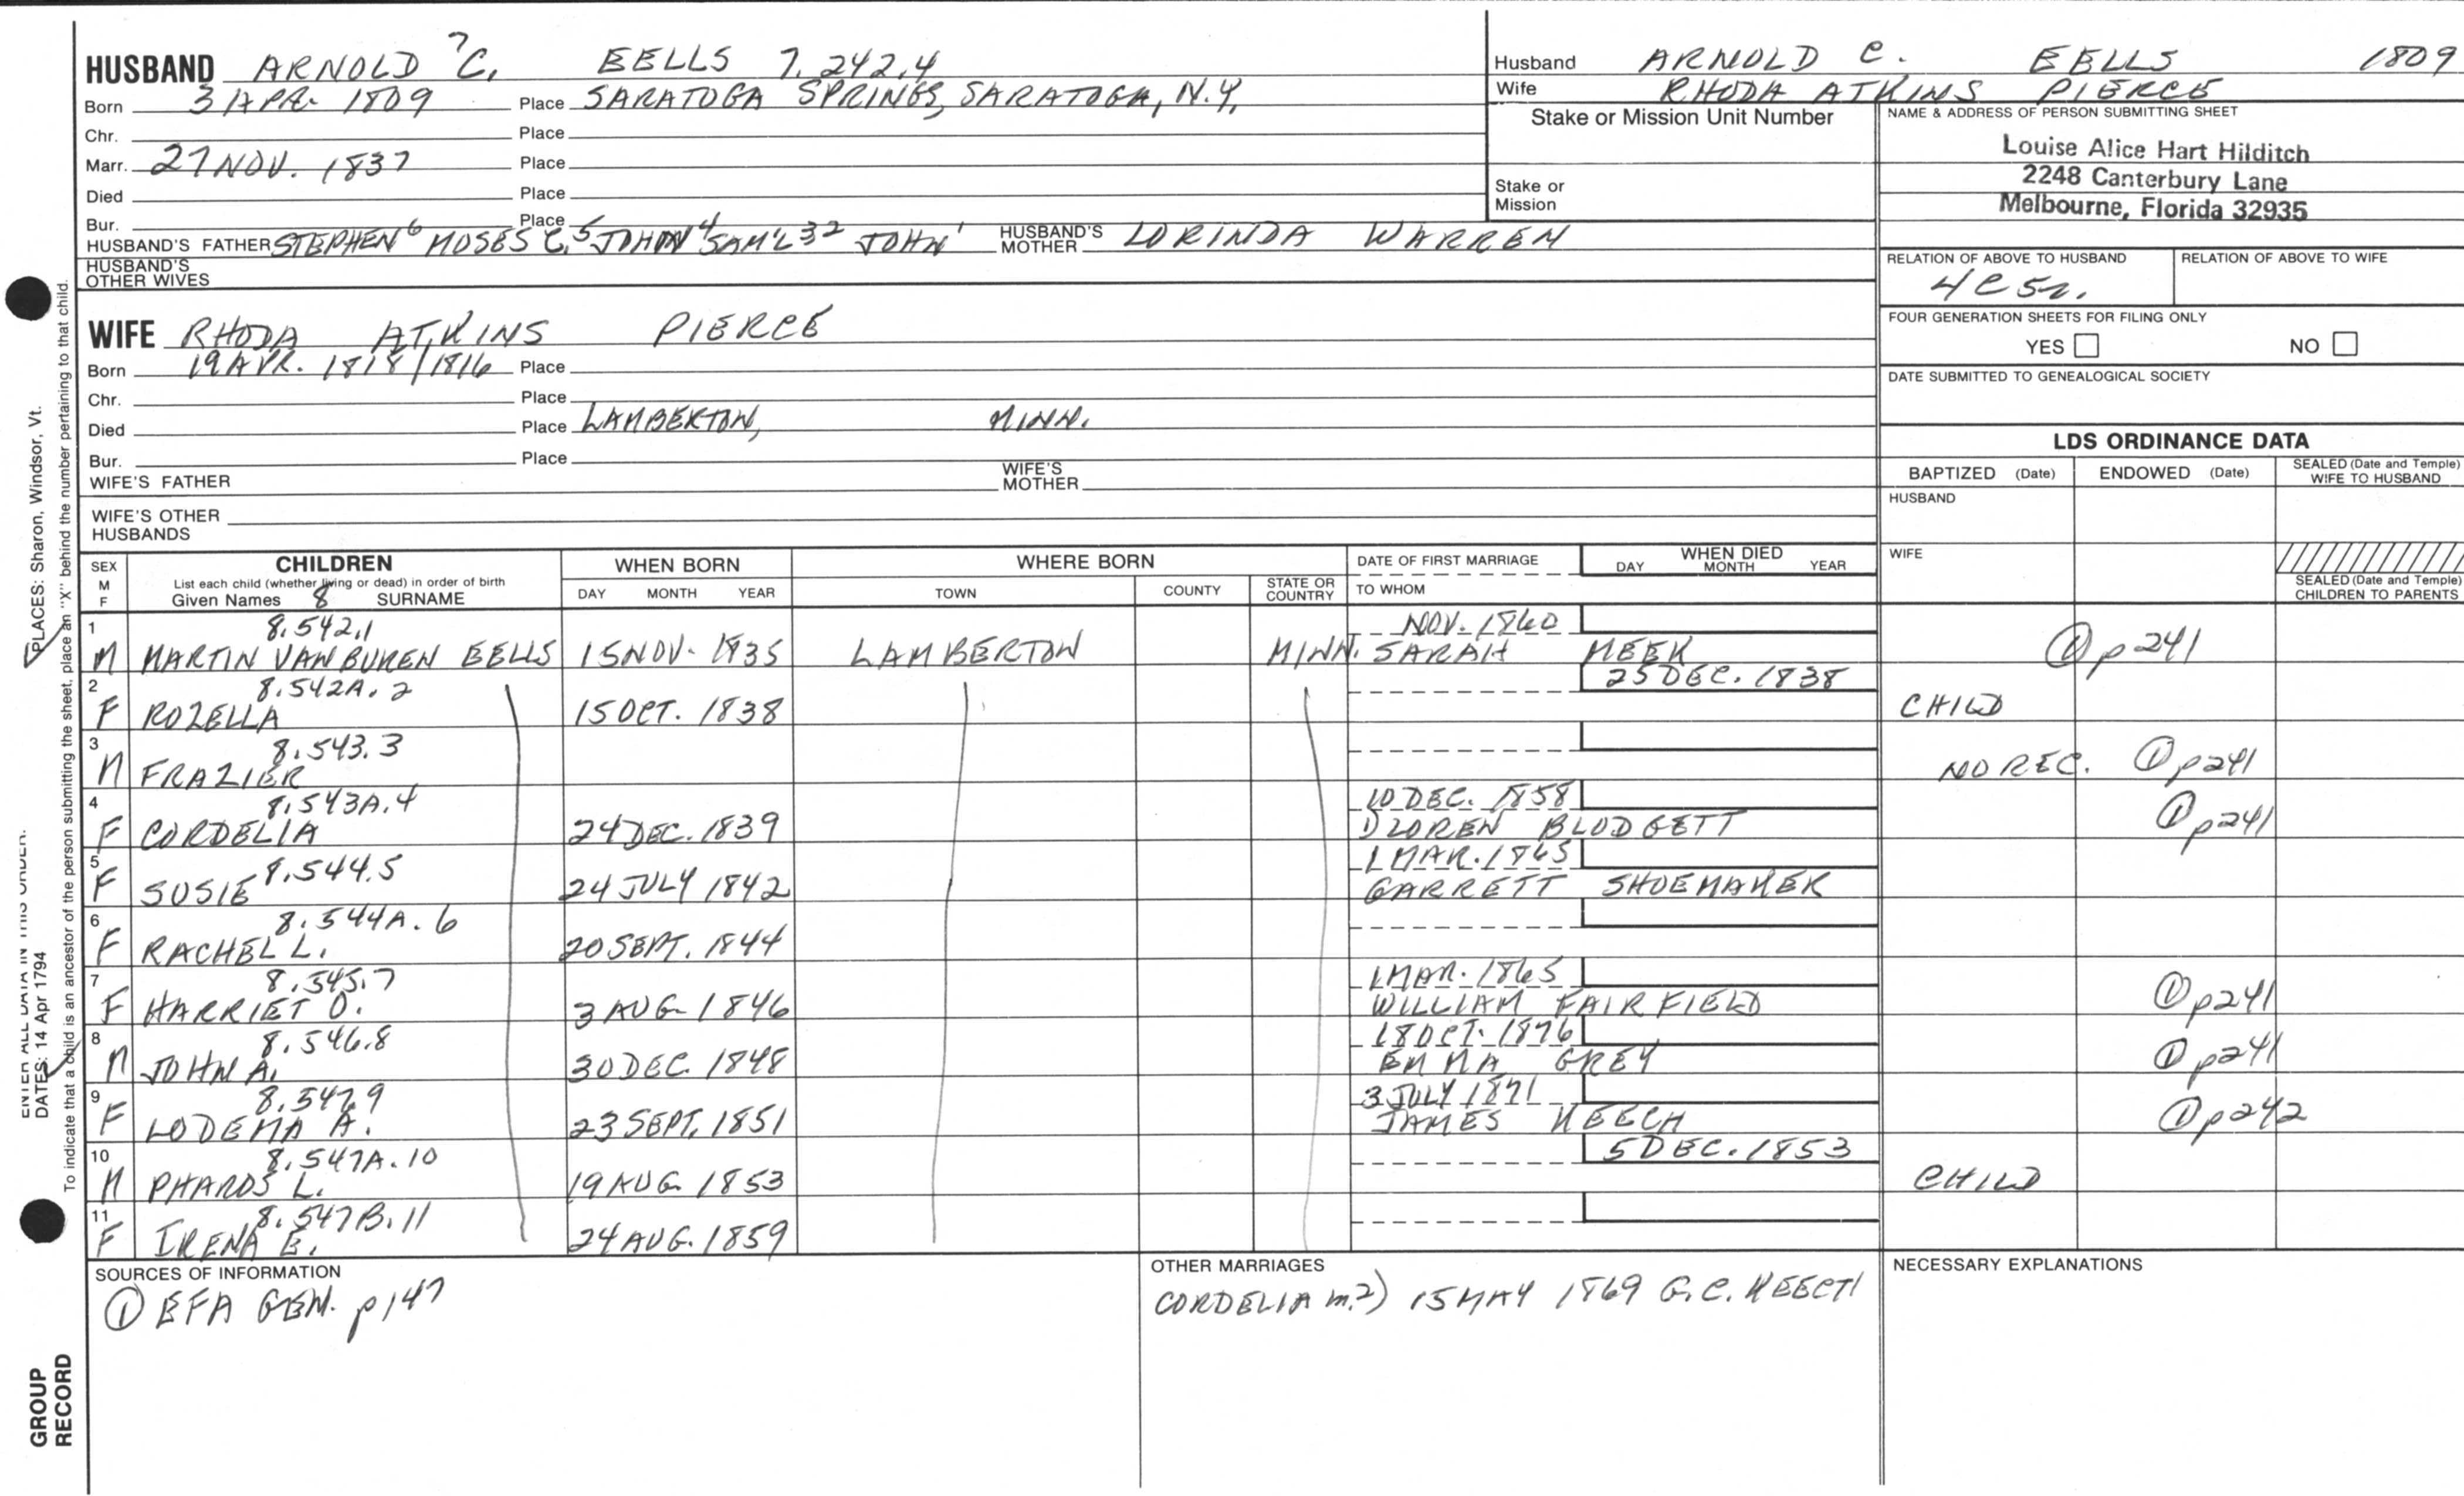 HUSBAND ARNOLD 7 C. EELLS 7.242.4
Born 3 APR. 1809 Place SARATOGA SPRINGS, SARATOGA, N.Y.
Chr. Place
Marr. 27 NOV. 1837 Place
Died Place
Bur. Place
HUSBAND'S FATHER STEPHEN 6 MOSES C. 5 JOHN 4 SAM'L 3 2 JOHN 1 HUSBAND'S MOTHER LORINDA WARREN
HUSBAND'S
OTHER WIVES
WIFE RHODA ATKINS PIERCE
Born 19 APR. 1818/1816 Place
Chr. Place
Died Place LAMBERTON, MINN.
Bur. Place
WIFE'S FATHER WIFE'S MOTHER
WIFE'S OTHER
HUSBANDS
Husband ARNOLD C. EELLS 1809
Wife RHODA ATKINS PIERCE
Stake or Mission Unit Number
Stake or
Mission
NAME & ADDRESS OF PERSON SUBMITTING SHEET
Louise Alice Hart Hilditch
2248 Canterbury Lane
Melbourne, Florida 32935
RELATION OF ABOVE TO HUSBAND RELATION OF ABOVE TO WIFE
4C5r.
FOUR GENERATION SHEETS FOR FILING ONLY
YES NO
DATE SUBMITTED TO GENEALOGICAL SOCIETY
LDS ORDINANCE DATA
BAPTIZED (Date) ENDOWED (Date) SEALED (Date and Temple) WIFE TO HUSBAND
HUSBAND
WIFE
SEALED (Date and Temple)
CHILDREN TO PARENTS
SEX M F CHILDREN WHEN BORN WHERE BORN DATE OF FIRST MARRIAGE WHEN DIED
List each child (whether living or dead) in order of birth
Given Names 8 SURNAME DAY MONTH YEAR TOWN COUNTY STATE OR COUNTRY TO WHOM DAY MONTH YEAR
1 8.542.1 NOV. 1860
M MARTIN VAN BUREN EELLS 15 NOV. 1835 LAMBERTON MINN. SARAH MEEK ① p241
2 8.542A.2 25 DEC. 1838
F ROZELLA 15 OCT. 1838 CHILD
3 8.543.3
M FRAZIER NO REC. ① p241
4 8.543A.4 10 DEC. 1858
F CORDELIA 24 DEC. 1839 1) LOREN BLODGETT ① p241
5 8.544.5 1 MAR. 1865
F SUSIE 24 JULY 1842 GARRETT SHOEMAKER
6 8.544A.6
F RACHEL L. 20 SEPT. 1844
7 8.545.7 1 MAR. 1865
F HARRIET O. 3 AUG. 1846 WILLIAM FAIRFIELD ① p241
8 8.546.8 18 OCT. 1876
M JOHN A. 30 DEC. 1848 EMMA GREY ① p241
9 8.547.9 3 JULY 1871
F LODEMA A. 23 SEPT. 1851 JAMES KEECH ① p242
10 8.547A.10 5 DEC. 1853
M PHAROS L. 19 AUG. 1853 CHILD
11 8.547B.11
F IRENA E. 24 AUG. 1859
SOURCES OF INFORMATION
① EFA GEN. p147
OTHER MARRIAGES
CORDELIA m. 2) 15 MAY 1869 G.C. KEECH
NECESSARY EXPLANATIONS
PLACES: Sharon, Windsor, Vt.
To indicate that a child is an ancestor of the person submitting the sheet, place an "X" behind the number pertaining to that child.
ENTER ALL DATA IN THIS ORDER:
DATES: 14 Apr 1794
GROUP
RECORD